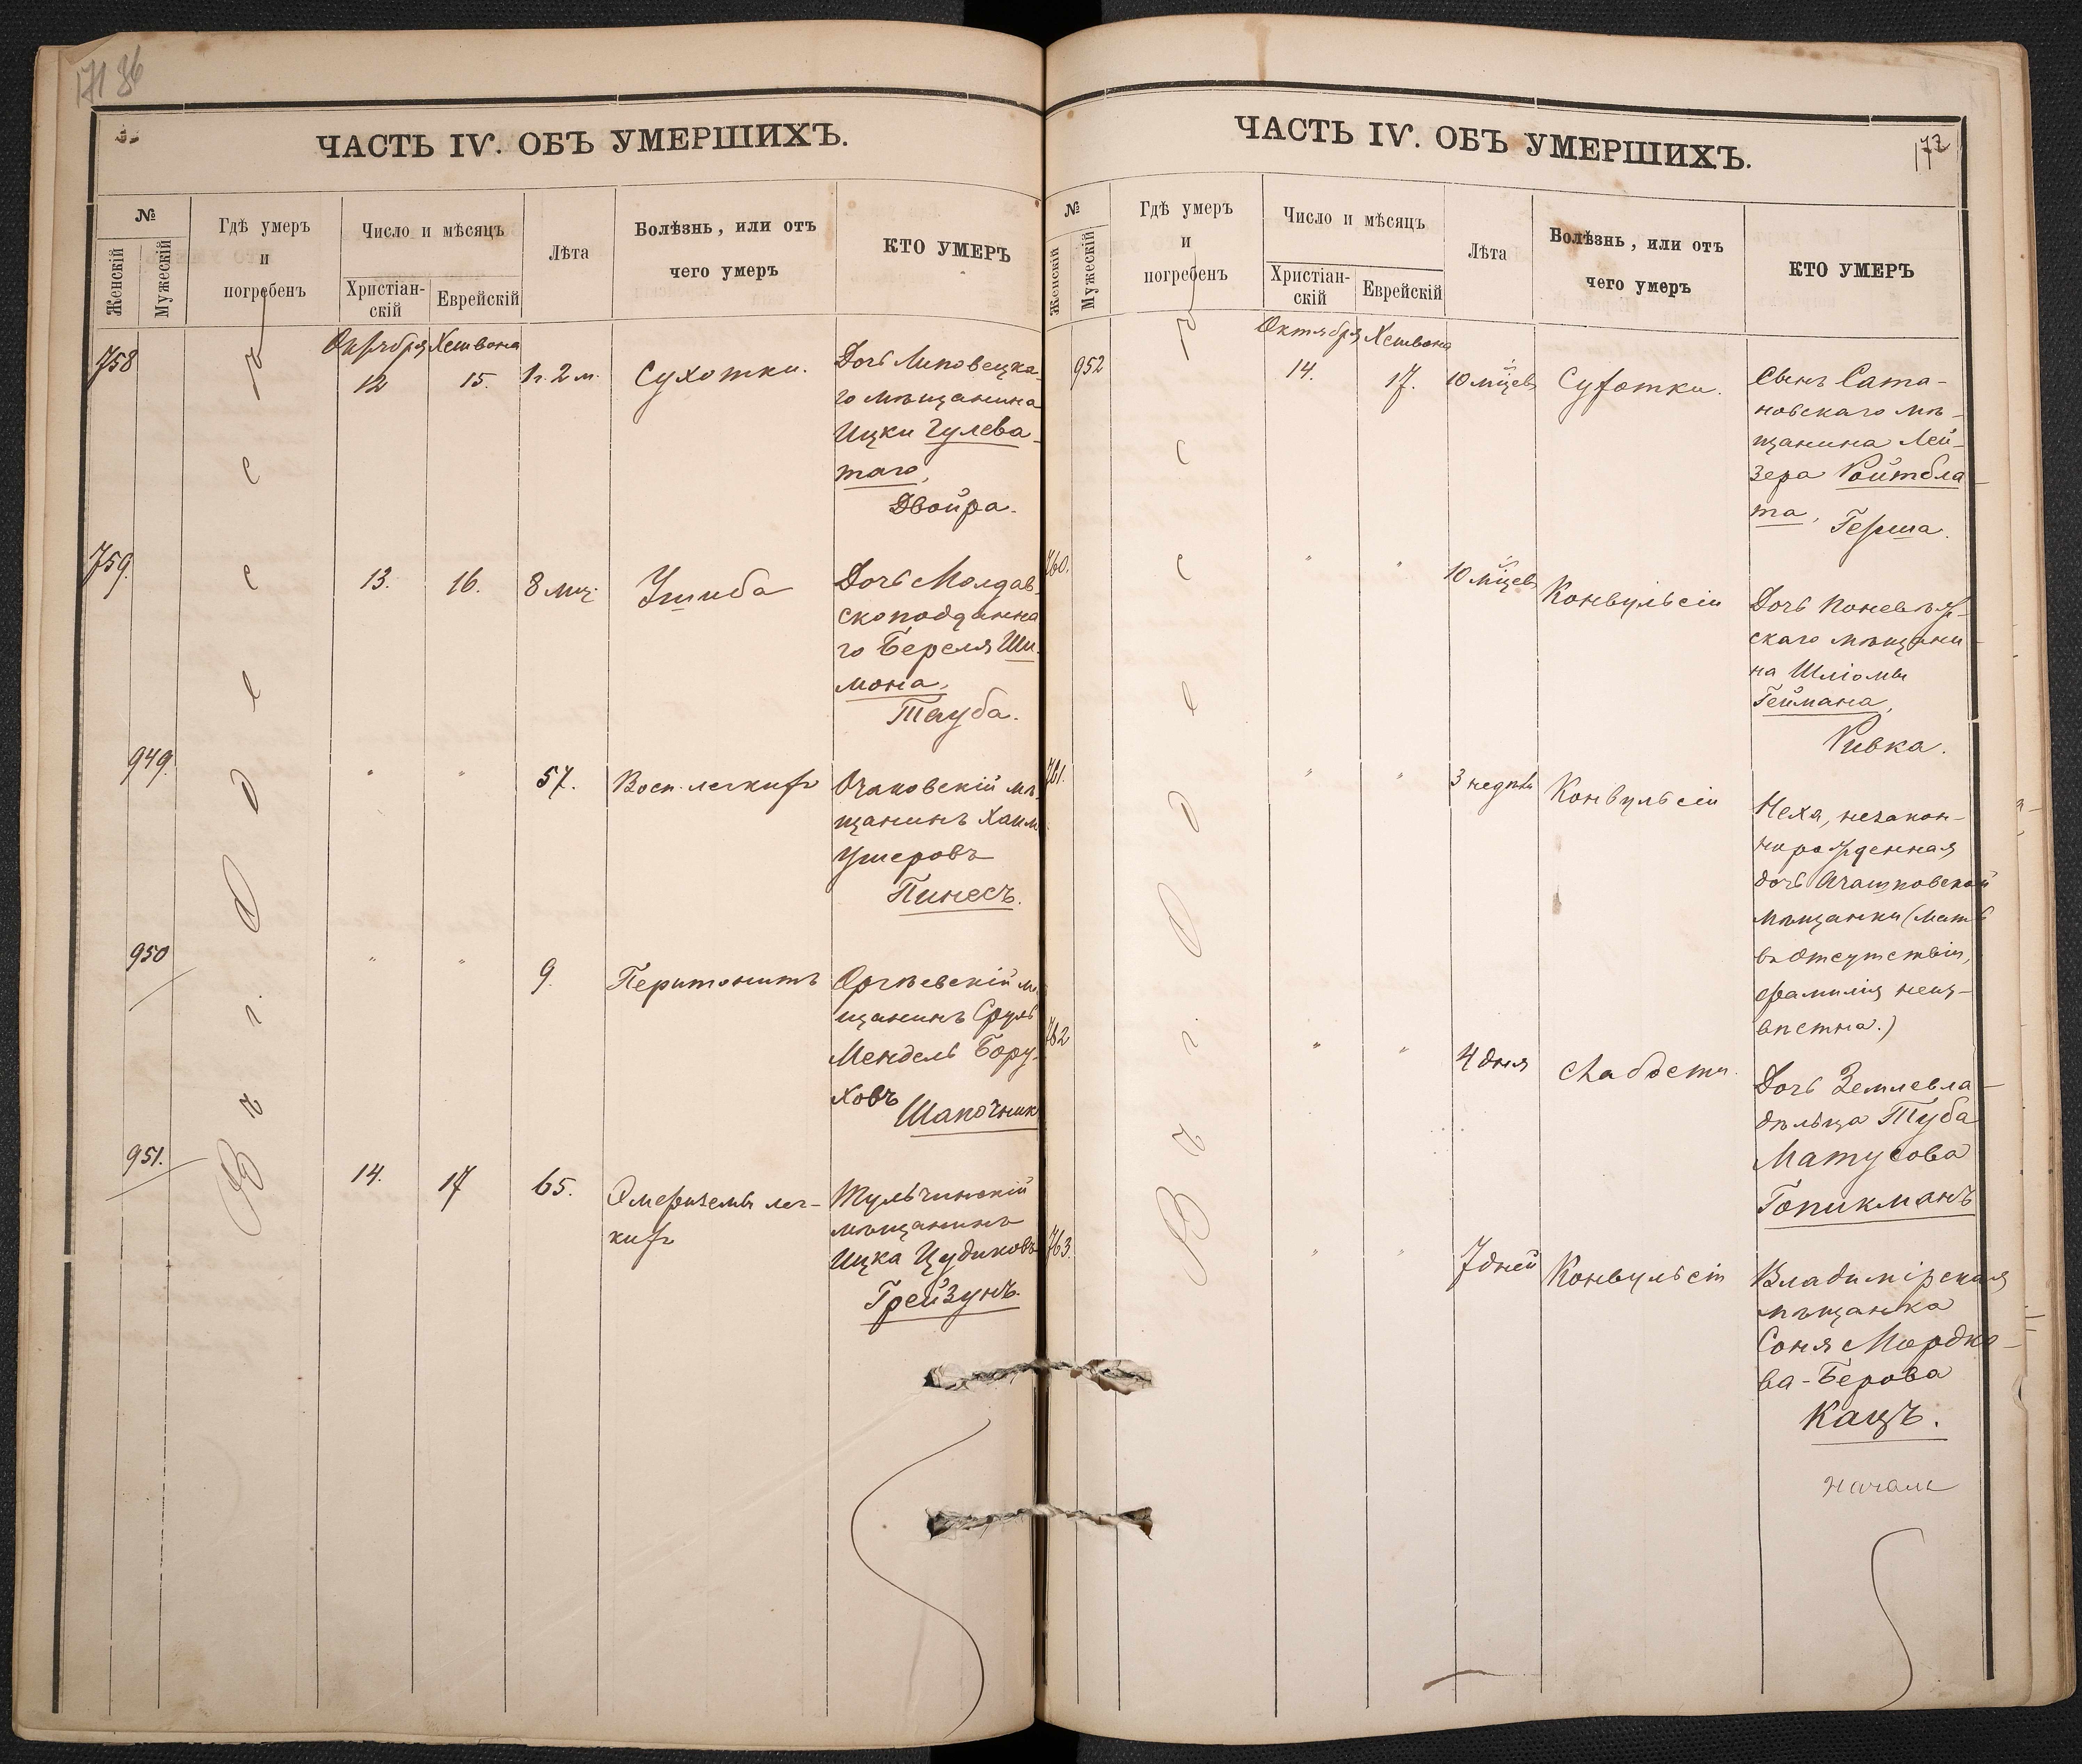 171 86
ЧАСТЬ IV. ОБЪ УМЕРШИХЪ.
№
Женскій
Мужескій
Гдѣ умеръ
и
погребенъ
Число и мѣсяцъ
Христіан-
скій
Еврейскій
Лѣта
Болѣзнь, или отъ
чего умеръ
КТО УМЕРЪ
Въ г. Одессѣ
Октября Хешвона
758
12
15.
1 г. 2 м.
Сухотки.
Дочь Липовецка-
го мѣщанина
Ицки Гулева-
таго,
Двойра.
759.
13.
16.
8 мц.
Ушиба
Дочь Молдав-
скоподданна
го Береля Ши-
мона,
Тауба.
949.
"
"
57.
Восп. легкихъ
Очаковскій мѣ-
щанинъ Хаим
Ушеровъ
Пинесъ.
950
"
"
9.
Перитонитъ
Оргѣевскій мѣ
щанинъ Сруль
Мендель Бору-
ховъ
Шапочник
951.
14.
17
65.
Эмфиземы лег-
кихъ
Тульчинскій
мѣщанинъ
Ицка Цудиковъ
Грейзунъ.
172
ЧАСТЬ IV. ОБЪ УМЕРШИХЪ.
№
Женскій
Мужескій
Гдѣ умеръ
и
погребенъ
Число и мѣсяцъ
Христіан-
скій
Еврейскій
Лѣта
Болѣзнь, или отъ
чего умеръ
КТО УМЕРЪ
Въ г. Одессѣ
Октября Хешвона
952
14.
17.
10 мѣцевъ
Сухотки.
Сынъ Сата-
новскаго мѣ-
щанина Лей-
зера Ройтбла-
та,
Герша.
760.
"
"
10 мѣцевъ
Конвульсіи
Дочь Поневѣж-
скаго мѣщани-
на Шліомы
Геймана,
Ривка.
761.
"
"
3 недѣли
Конвульсіи
Неха, незакон-
норожденная
дочь
мѣщанки (мать
въ отсутствіи,
фамилія неиз-
вѣстна.)
762
"
"
4 дня
слабости.
Дочь Землевла-
дѣльца Туба
Матусова
Гопикманъ
763.
"
"
7 дней
Конвульсіи
Владимірская
мѣщанка
Соня Мордко-
ва-Берова
Кацъ.